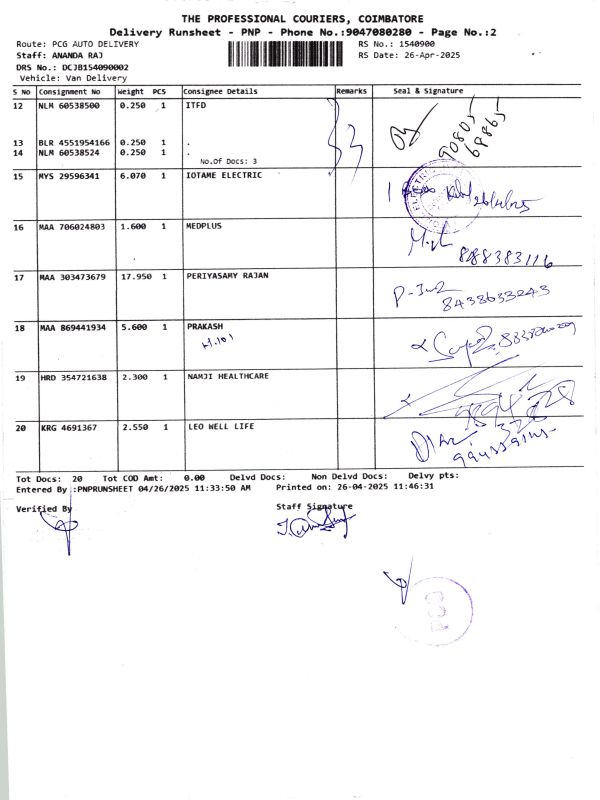 THE PROFESSIONAL COURIERS, COIMBATORE
Delivery Runsheet - PNP - Phone No.:9047080280 - Page No.:2
Route: PCG AUTO DELIVERY RS No.: 1540900
Staff: ANANDA RAJ RS Date: 26-Apr-2025
DRS No.: DCJB154090002
Vehicle: Van Delivery
S No Consignment No Weight PCS Consignee Details Remarks Seal & Signature
12 NLM 60538500 0.250 1 ITFD
90805
68865
13 BLR 4551954166 0.250 1 .
14 NLM 60538524 0.250 1 .
No.Of Docs: 3
15 MYS 29596341 6.070 1 IOTAME ELECTRIC
26/4/2025
16 MAA 706024803 1.600 1 MEDPLUS
8488383116
17 MAA 303473679 17.950 1 PERIYASAMY RAJAN
8438633243
18 MAA 869441934 5.600 1 PRAKASH
H.101
19 HRD 354721638 2.300 1 NAMJI HEALTHCARE
20 KRG 4691367 2.550 1 LEO WELL LIFE
Tot Docs: 20 Tot COD Amt: 0.00 Delvd Docs: Non Delvd Docs: Delvy pts:
Entered By :PNPRUNSHEET 04/26/2025 11:33:50 AM Printed on: 26-04-2025 11:46:31
Verified By Staff Signature